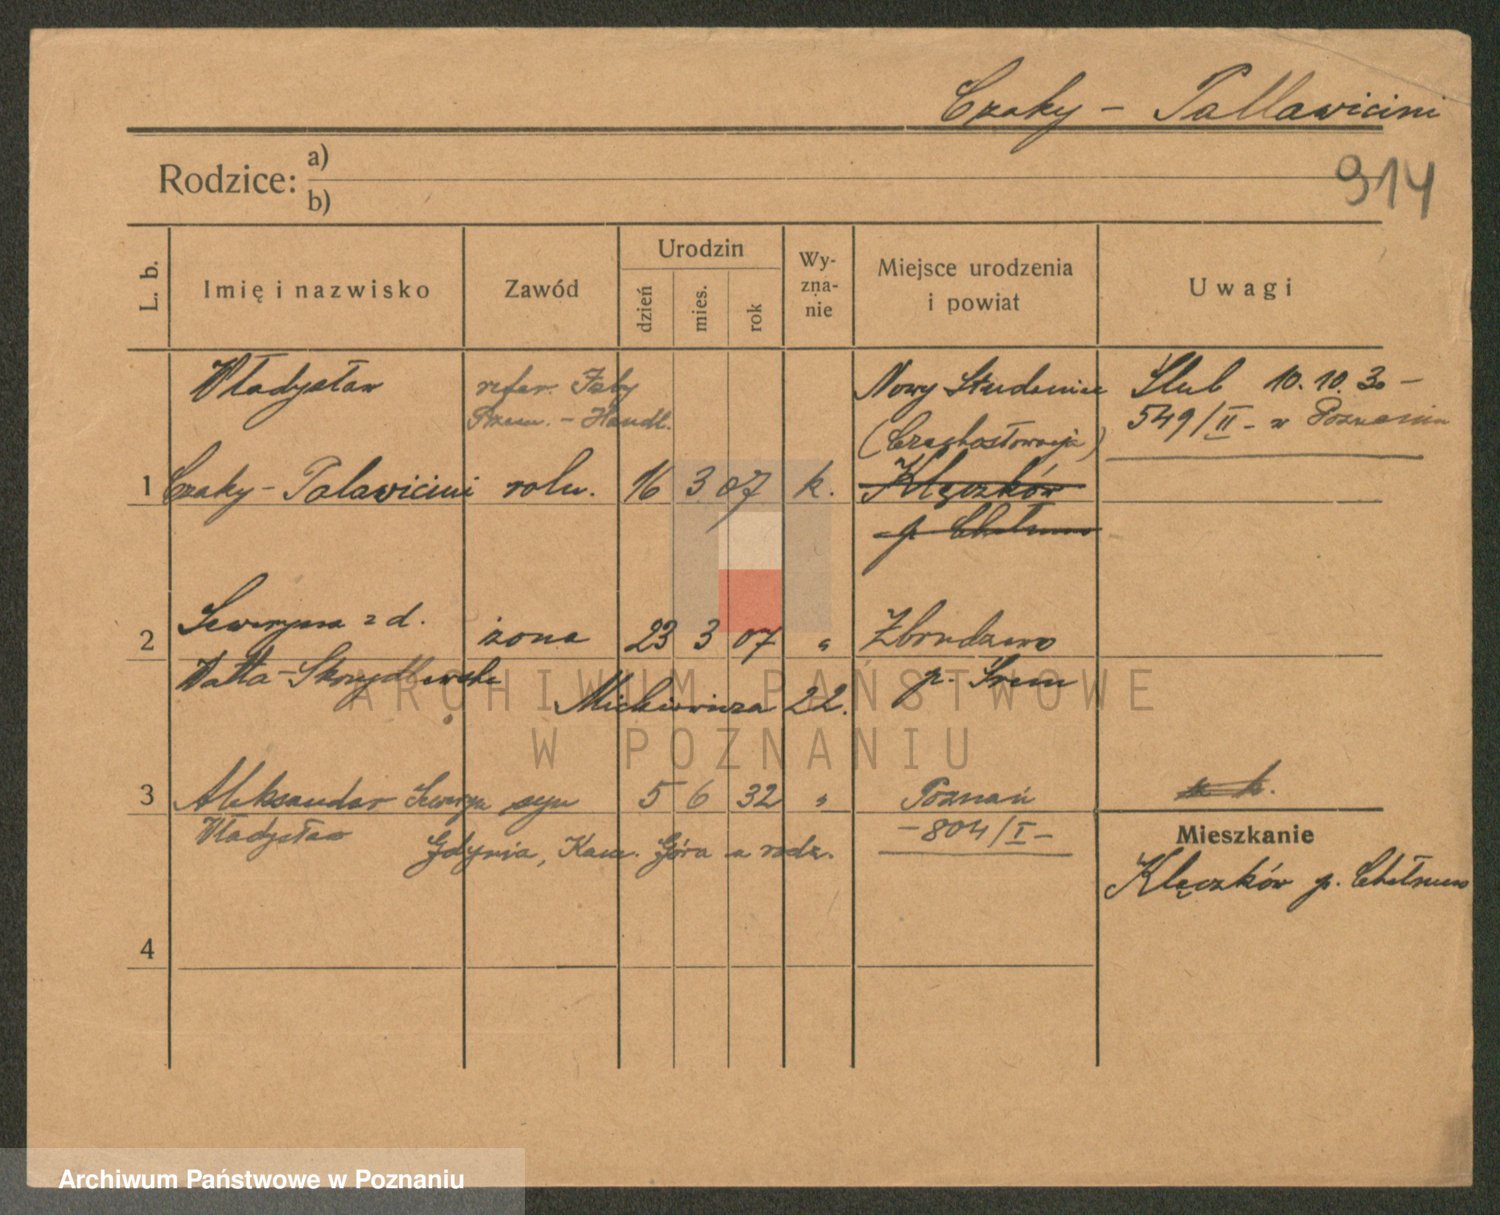 Czaky - Pallawicini
914
Rodzice: a)
b)
L. b.
Imię i nazwisko
Zawód
Urodzin
dzień
mies.
rok
Wy-
zna-
nie
Miejsce urodzenia
i powiat
Uwagi
Władysław
refer. Izby
Przem. - Handl.
Nowy Studeniec
(Czechosłowacja)
Ślub 10.10.30 -
549/II - w Poznaniu
1 Czaky - Palawicini roln. 16 3 07 k. Klęczków
p. Chełmno
2 Seweryna z d. żona 23 3 07 " Zbrudzewo
Watta-Skrzydlewska p. Śrem
Mickiewicza 22.
3 Aleksander Seweryn syn 5 6 32 " Poznań
Władysław - 804/I -
Gdynia, Kam. Góra u rodz.
Mieszkanie
Klęczków p. Chełmno
4
ARCHIWUM PAŃSTWOWE
W POZNANIU
Archiwum Państwowe w Poznaniu